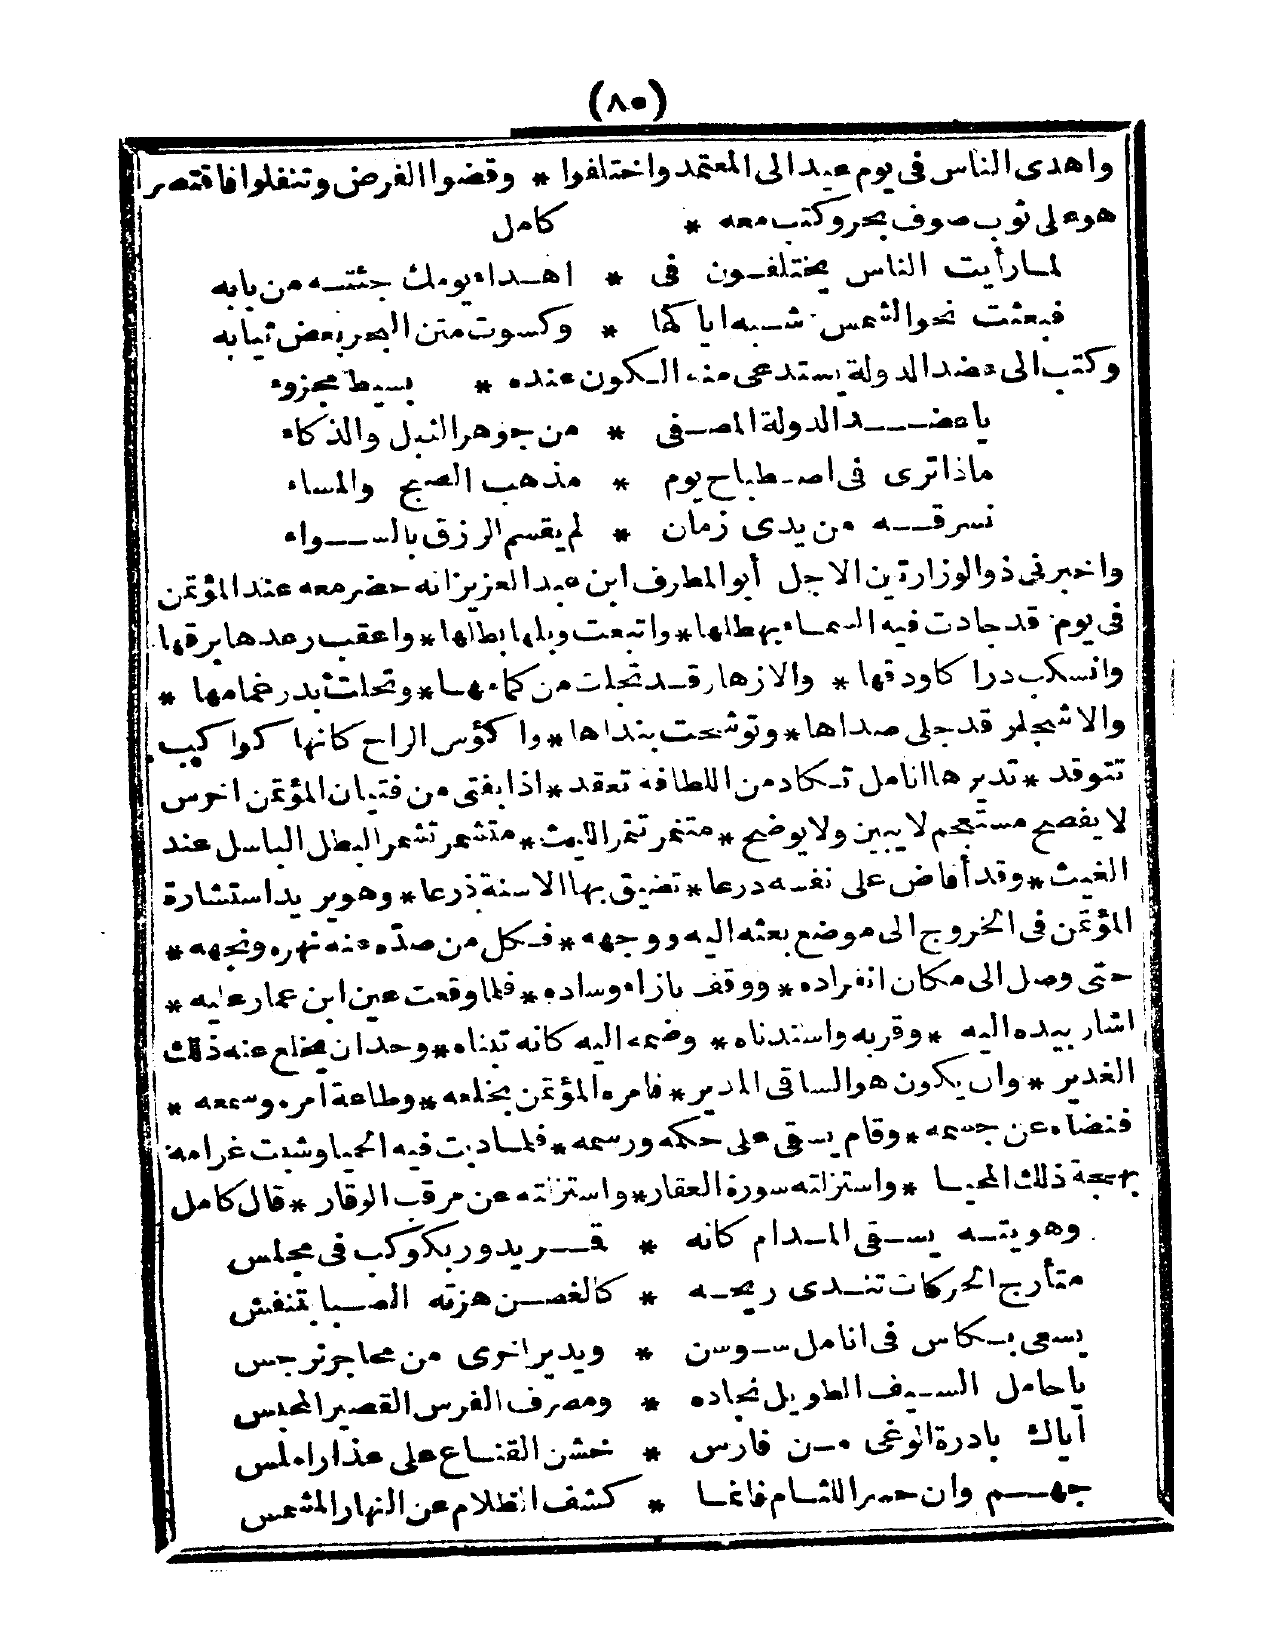 (٨٥)
واهدى الناس فى يوم عيد الى المعتمد واختلفوا * وقضوا الفرض وتنفلوا فاقتصر
هو على ثوب صوف بحر وكتب معه * كامل
لما رأيت الناس يختلفون فى * اهداء يومك جئته من بابه
فبعثت نحو الشمس شبه اياتها * وكسوت متن البحر بعض ثيابه
وكتب الى عضد الدولة يستدعى منه الكون عنده * بسيط مجزوء
يا عضد الدولة المصفى * من جوهر النبل والذكاء
ماذا ترى فى اصطباح يوم * مذهب الصبح والمساء
نسرقه من يدى زمان * لم يقسم الرزق بالسواء
واخبرنى ذو الوزارتين الاجل أبو المطرف ابن عبد العزيز انه حضر معه عند المؤتمن
فى يوم قد جادت فيه السماء بهطلها * واتبعت وبلها بطلها * واعقب رعدها برقها
وانسكب درا كا ودقها * والازهار قد تجلت من كمامها * وتحلت بدر غمامها *
والاشجار قد جلى صداها * وتوشحت بنداها * واكؤس الراح كانها كواكب
تتوقد * تديرها انامل تكاد من اللطافة تعقد * اذا بفتى من فتيان المؤتمن اخرس
لا يفصح مستعجم لا يبين ولا يوضح * متنمر تنمر الليث * متشمر تشمر البطل الباسل عند
الغيث * وقد أفاض على نفسه درعا * تضيق بها الاسنة ذرعا * وهو يريد استشارة
المؤتمن فى الخروج الى موضع بعثه اليه ووجهه * فكل من صده عنه نهره ونجهه *
حتى وصل الى مكان انفراده * ووقف بازاء وساده * فلما وقعت عين ابن عمار عليه *
اشار بيده اليه * وقربه واستدناه * وضمه اليه كانه تبناه * وحد ان يخلع عنه ذلك
الغدير * وان يكون هو الساقى المدير * فامره المؤتمن بخلعه * وطاعة أمره وسمعه *
فنضاه عن جسمه * وقام يسقى على حكمه ورسمه * فلما دبت فيه الحميا وشبت غرامه
بهجة ذلك المحيا * واستزلته سورة العقار * واستزلته عن مرقب الوقار * قال كامل
وهويته يسقى المدام كانه * قمر يدور بكوكب فى مجلس
متأرج الحركات تندى ريحه * كالغصن هزته الصبا بتنفس
يسعى بكاس فى انامل سوسن * ويدير اخرى من محاجر نرجس
يا حامل السيف الطويل نجاده * ومصرف الفرس القصير المحبس
اياك بادرة الوغى من فارس * خشن القناع على عذار املس
جهم وان حسر اللثام فانما * كشف الظلام عن النهار المشمس